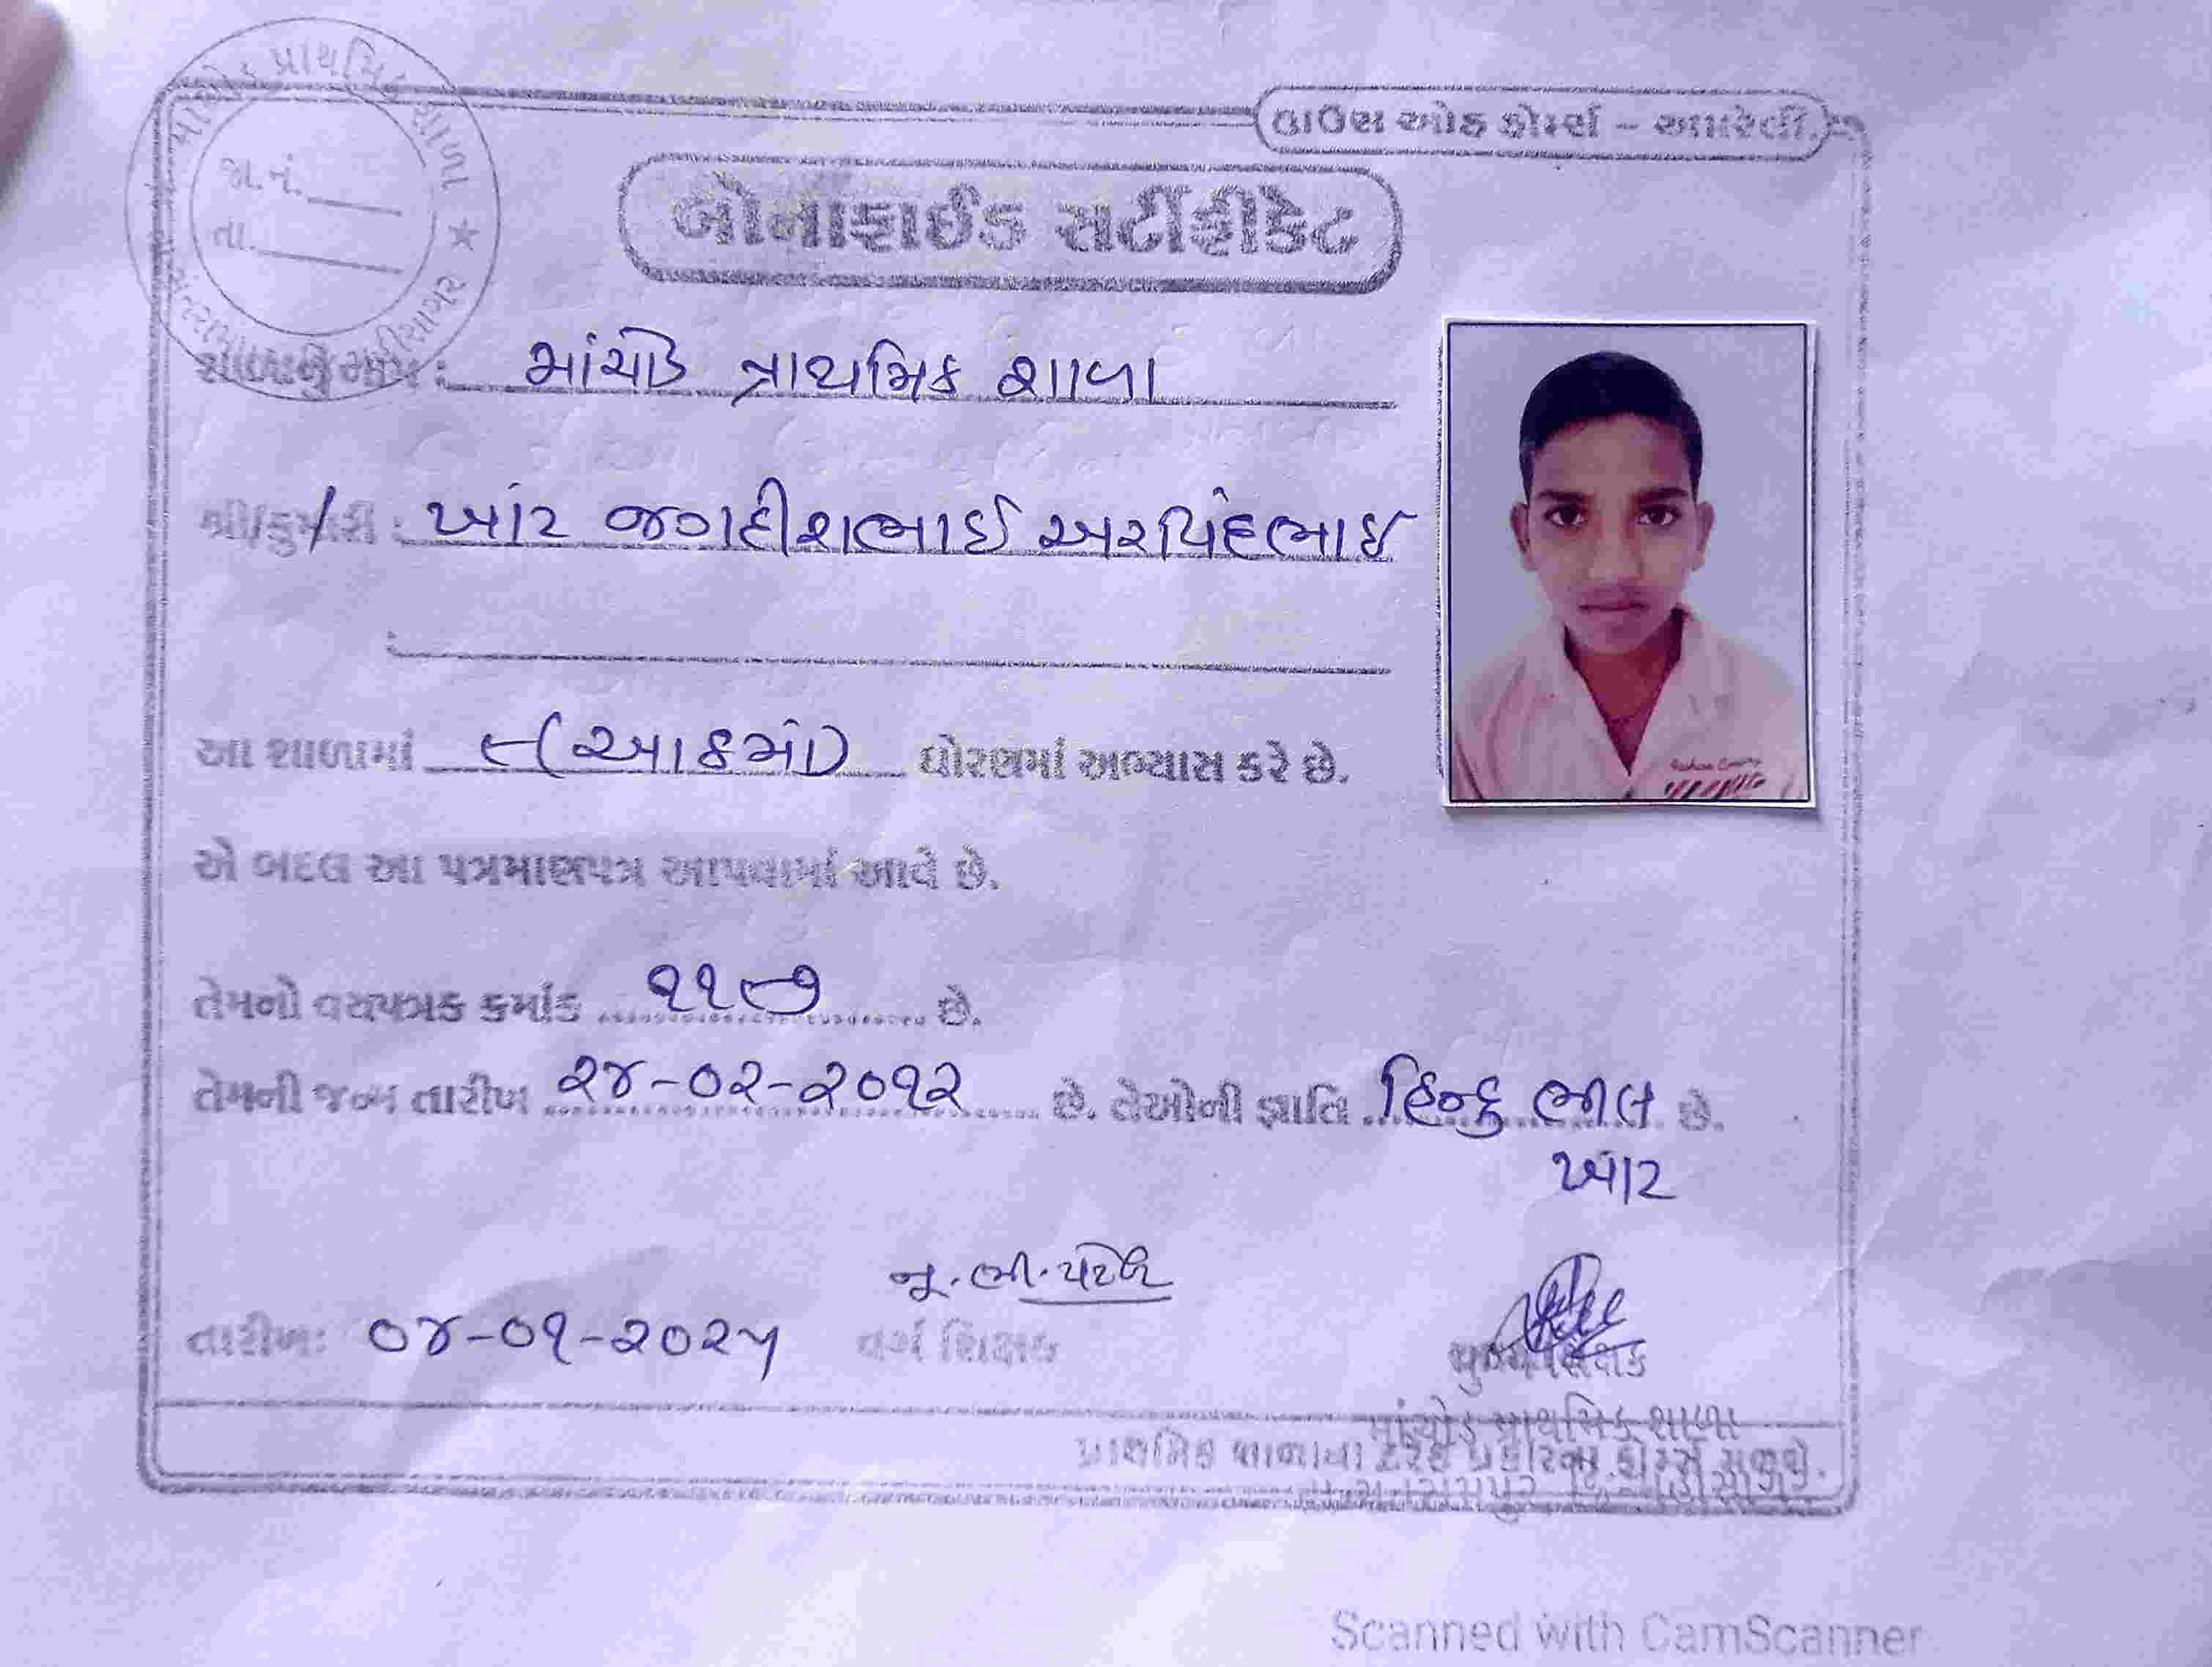 માંચોડ પ્રાથમિક શાળા ★
જા.નં.
તા.
હાઉસ ઓફ ફોર્મ્સ – અમરેલી.
બોનાફાઈડ સર્ટીફીકેટ
શાળાનું નામ : માંચોડ પ્રાથમિક શાળા
શ્રી/કુમારી : ખાંટ જગદીશભાઈ અરવિંદભાઈ
આ શાળામાં ૮(આઠમાં) ધોરણમાં અભ્યાસ કરે છે.
એ બદલ આ પત્રમાણપત્ર આપવામાં આવે છે.
તેમનો વયપત્રક ક્રમાંક ૧૧૮૭ છે.
તેમની જન્મ તારીખ ૨૪-૦૨-૨૦૧૨ છે. તેઓની જ્ઞાતિ હિન્દુ ભીલ છે.
ખાંટ
નૂ.ભી.પટેલ
તારીખઃ ૦૪-૦૧-૨૦૨૫ વર્ગ શિક્ષક મુખ્ય શિક્ષક
માંચોડ પ્રાથમિક શાળા
પ્રાથમિક શાળાના દરેક પ્રકારના ફોર્મ્સ મળશે.
Scanned with CamScanner